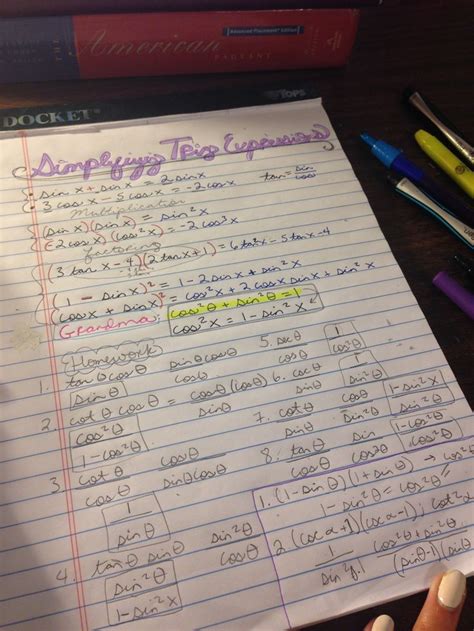 American
Advanced Placement Edition
PAGEANT
DOCKET
TOPS
Simplifying Trig Expressions
sin x + sin x = 2 sin x
3 cos x - 5 cos x = -2 cos x
tan = sin/cos
Multiplication
(sin x)(sin x) = sin²x
(-2 cos x)(cos²x) = -2 cos³x
factoring
(3 tan x - 4)(2 tan x + 1) = 6 tan²x - 5 tan - 4
(1 - sin x)² = 1 - 2 sin x + sin²x
(cos x + sin x)² = cos²x + 2 cos x sin x + sin²x
Grandma:
cos²θ + sin²θ = 1
cos²x = 1 - sin²x
Homework
1. tan θ cos θ
sin θ cos θ
cos θ
sin θ
2. cot θ cos θ = cos θ (cos) θ
sin θ
cos²θ
1 - cos²θ
3. cot θ
cos θ
cos θ
sin θ cos θ
1
sin θ
4. tan θ sin θ
sin²θ
cos θ
sin²θ
1 - sin²x
5. sec θ
cos θ
1
cos²θ
6. csc θ
sin θ
1
sin²θ
7. cot θ
sin θ
cos θ
sin²θ
1 - sin²x
cos²θ
8. tan θ
cos θ
sin θ
cos²θ
1. (1 - sin θ)(1 + sin θ) → cos²θ
1 - sin²θ = cos²θ
2. (csc α + 1)(csc α - 1)
cos²θ + sin²θ
1
sin²θ
(sin θ - 1)(sin θ